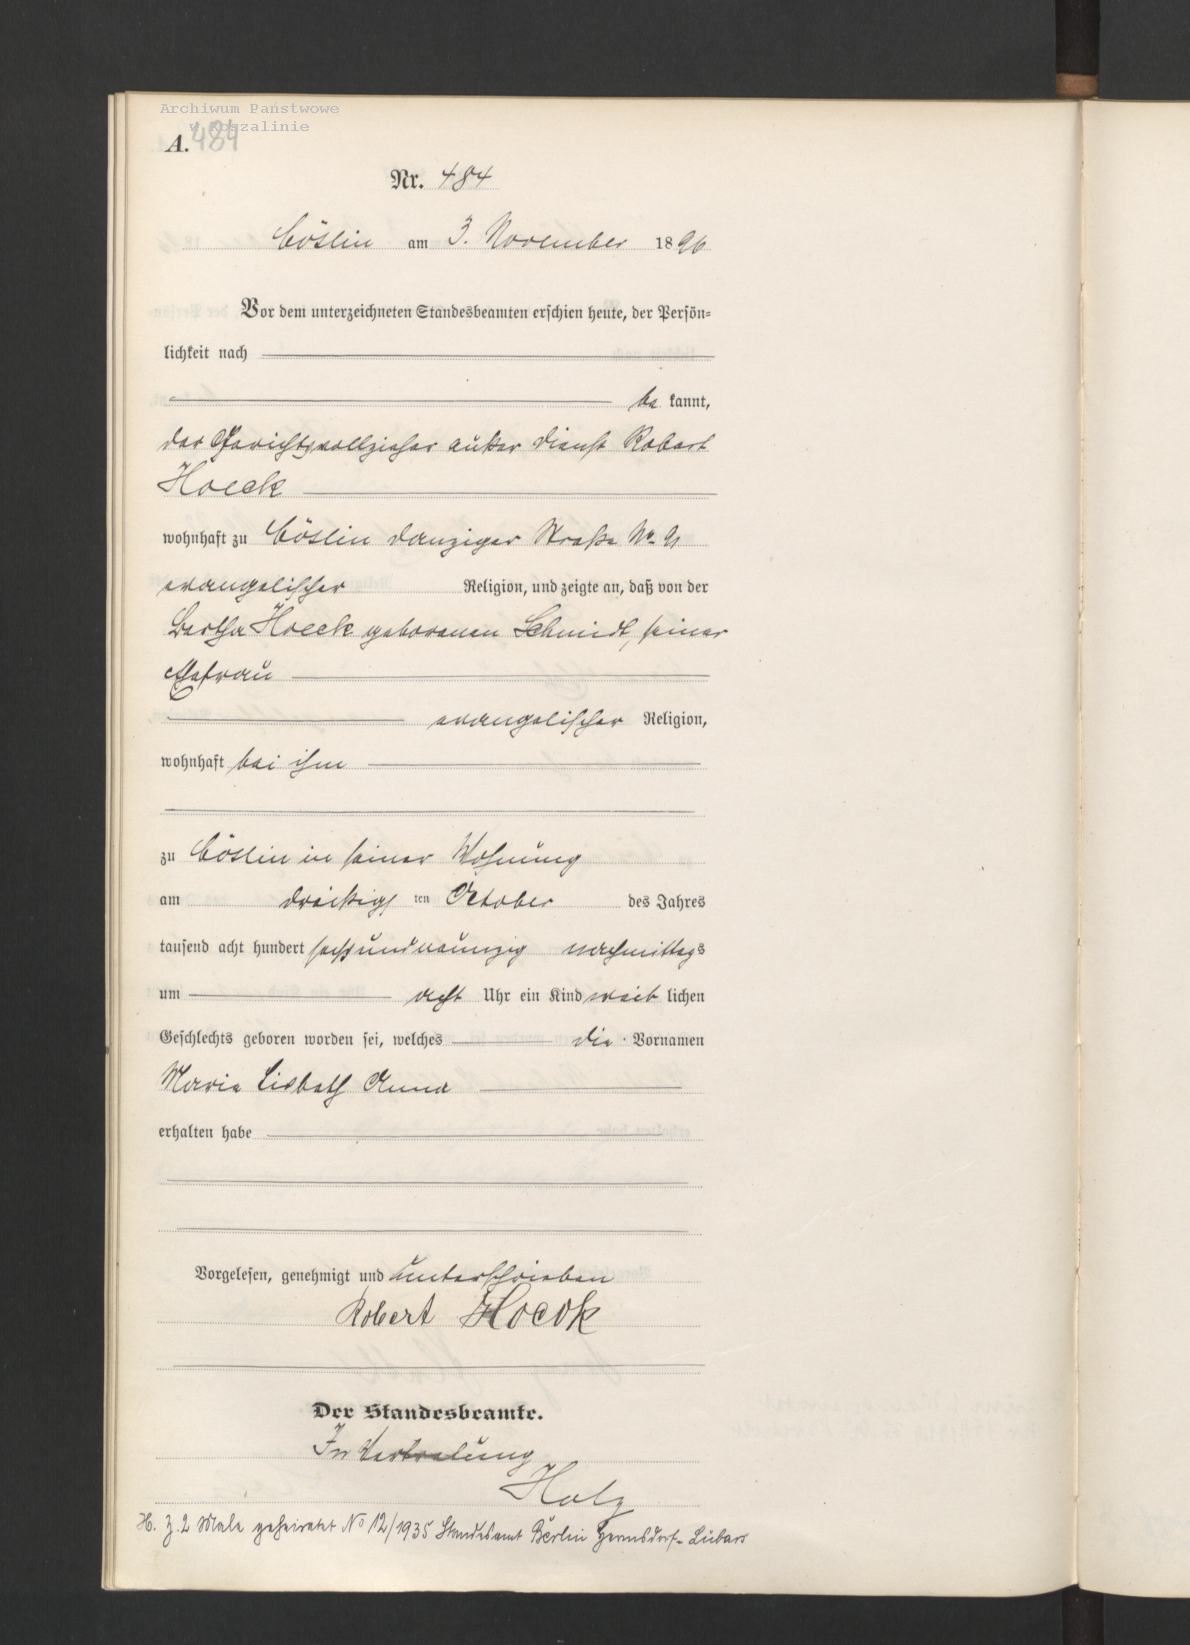 Archiwum Państwowe
w Koszalinie
A. 484
Nr. 484
Cöslin am 3. November 1896
Vor dem unterzeichneten Standesbeamten erschien heute, der Persön-
lichkeit nach
be kannt,
der Gerichtsvollzieher außer Dienst Robert
Hoeck
wohnhaft zu Cöslin Danziger Straße No 9
evangelischer Religion, und zeigte an, daß von der
Bertha Hoeck geborenen Schmidt, seiner
Ehefrau
evangelischer Religion,
wohnhaft bei ihm
zu Cöslin in seiner Wohnung
am dreißigs ten October des Jahres
tausend acht hundert sechsundneunzig nachmittags
um acht Uhr ein Kind weib lichen
Geschlechts geboren worden sei, welches die Vornamen
Maria Lisbeth Anna
erhalten habe
Vorgelesen, genehmigt und unterschrieben
Robert Hoeck
Der Standesbeamte.
In Vertretung
Holz
H. z. 2 Male geheiratet No 12/1935 Standesamt Berlin Hermsdorf-Lübars